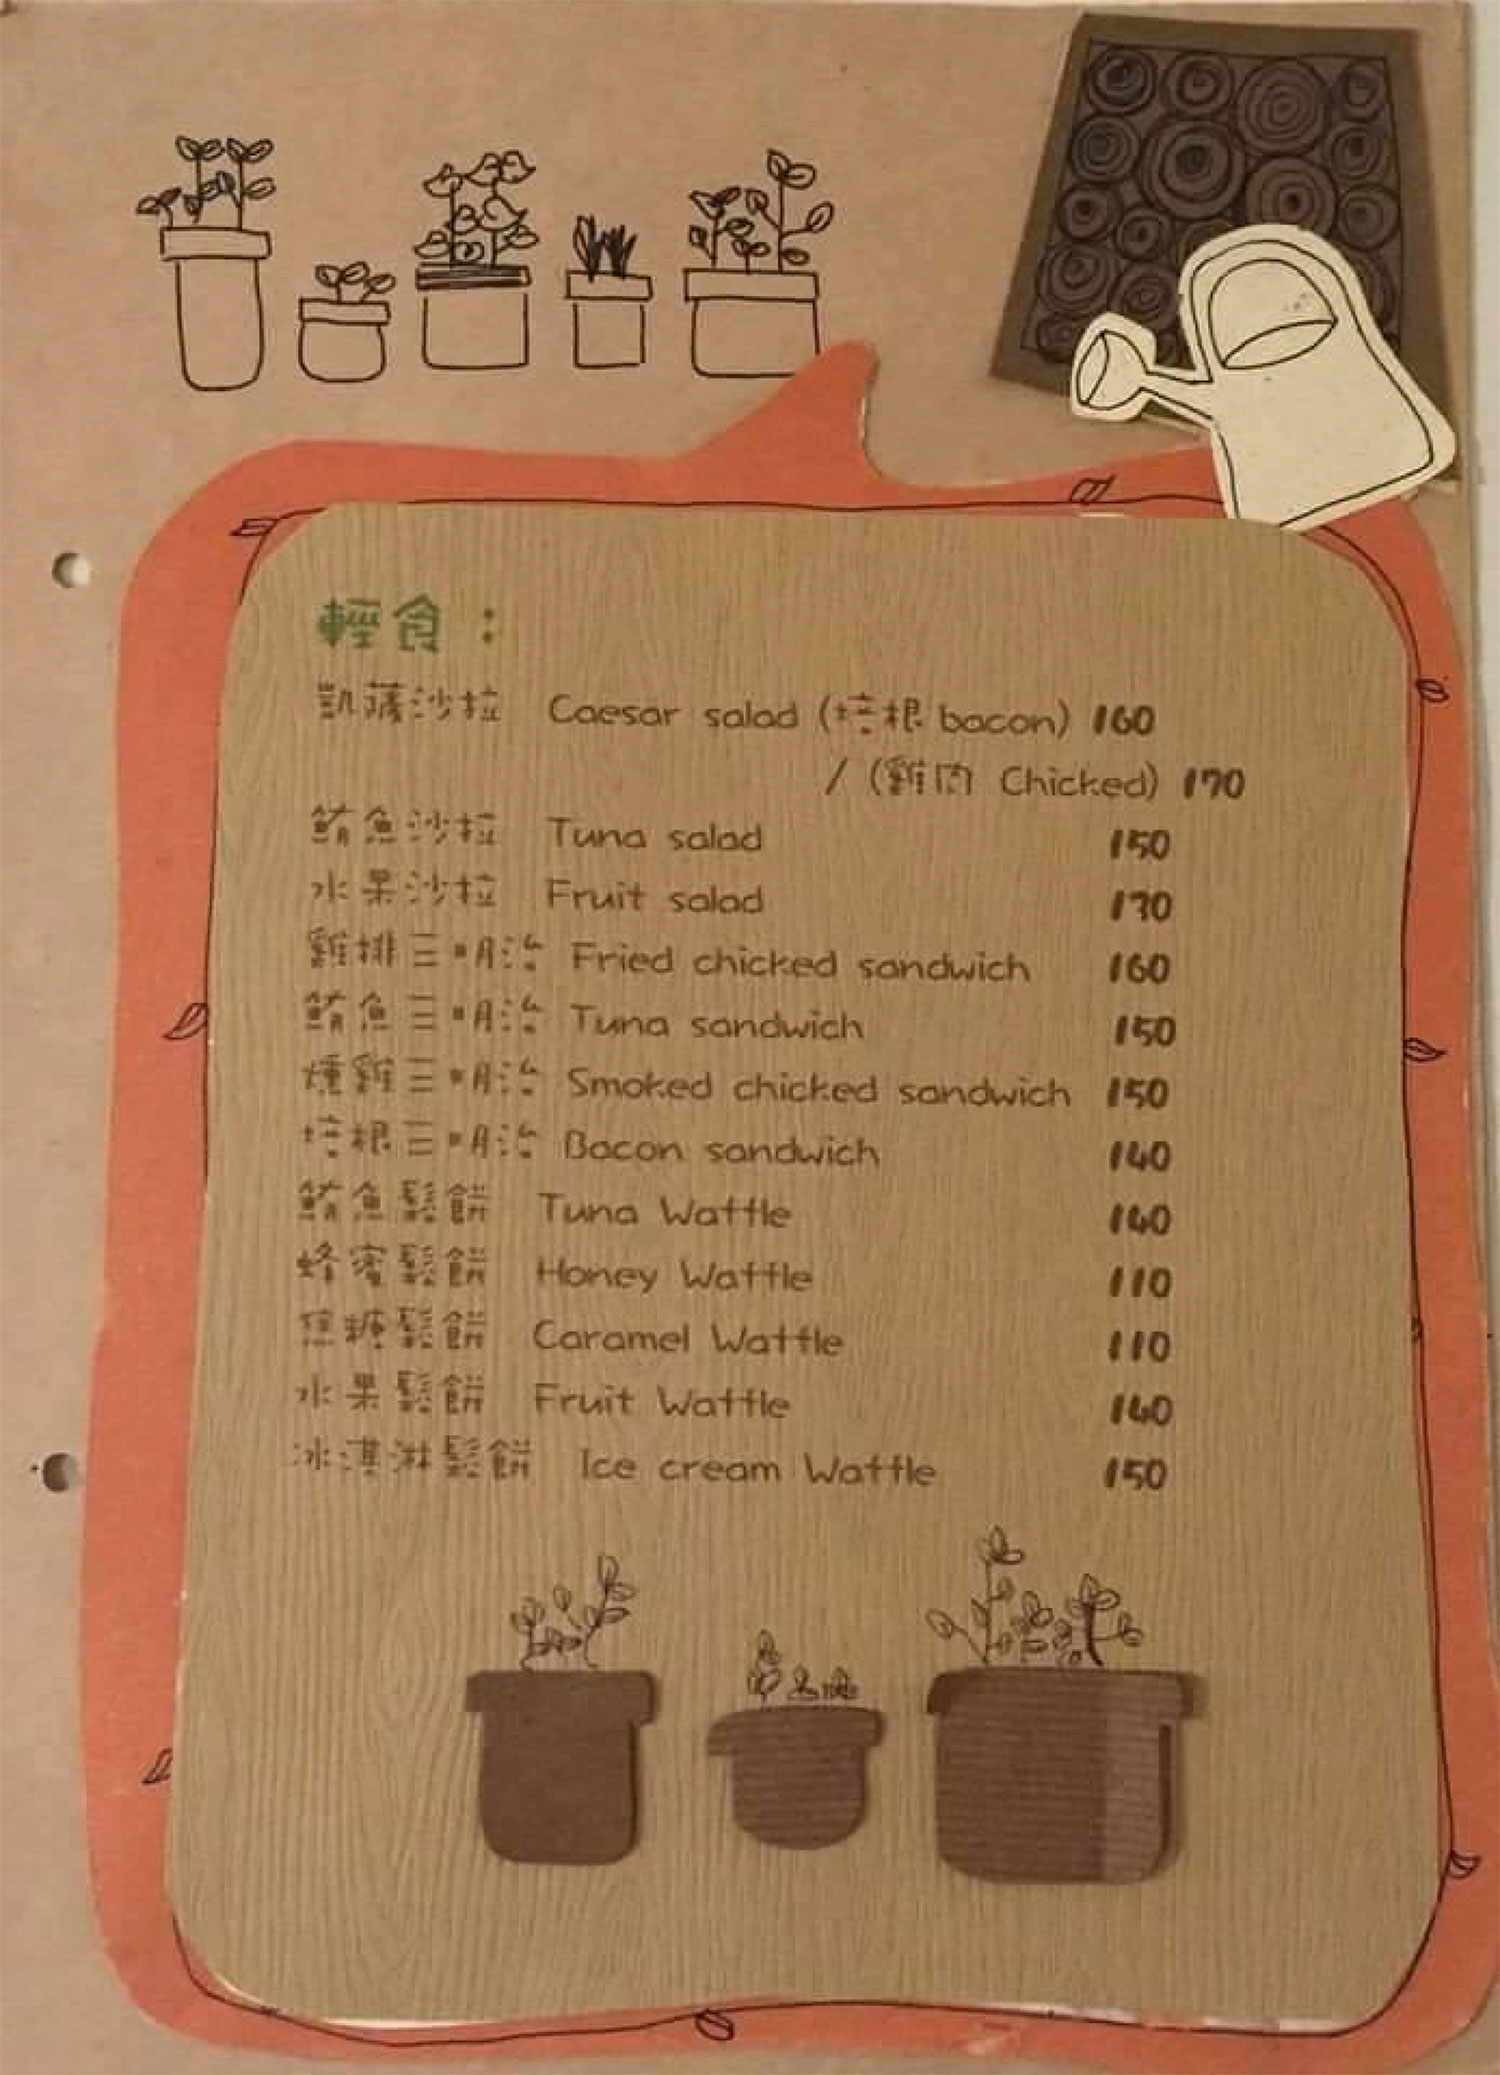 輕食：
凱薩沙拉 Caesar salad (培根 bacon) 160
/ (雞肉 Chicked) 170
鮪魚沙拉 Tuna salad 150
水果沙拉 Fruit salad 130
雞排三明治 Fried chicked sandwich 160
鮪魚三明治 Tuna sandwich 150
燻雞三明治 Smoked chicked sandwich 150
培根三明治 Bacon sandwich 140
鮪魚鬆餅 Tuna Waffle 140
蜂蜜鬆餅 Honey Waffle 110
焦糖鬆餅 Caramel Waffle 110
水果鬆餅 Fruit Waffle 140
冰淇淋鬆餅 Ice cream Waffle 150